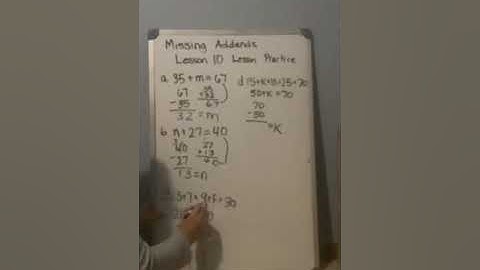 Missing Addends
Lesson 10 Lesson Practice
a. 35 + m = 67
67
- 35
32 = m
35
+ 32
67
b. n + 27 = 40
40
- 27
13 = n
27
+ 13
40
+ 7 + 9 + 5 = 30
d. 15 + K + 10 + 25 = 70
50 + K = 70
70
- 50
= K